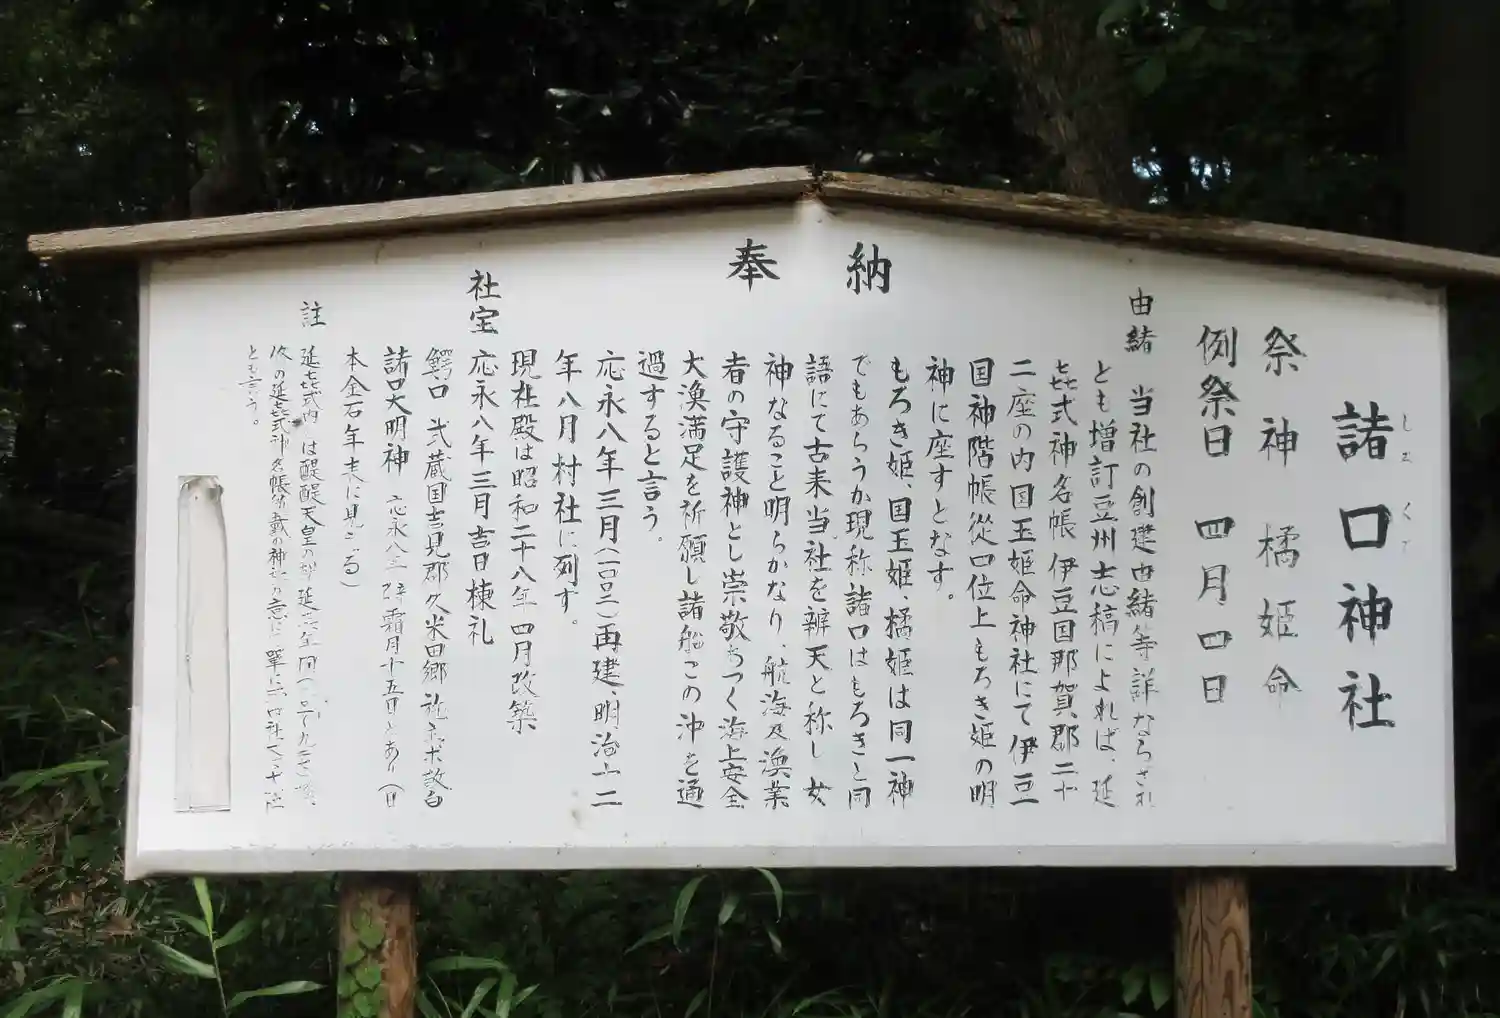 奉納
諸口神社
祭神 橘姫命
例祭日 四月四日
由緒 当社の創建由緒等詳ならざれ
とも増訂豆州志稿によれば、延
㐂式神名帳 伊豆国那賀郡二十
二座の内国玉姫命神社にて伊豆
国神階帳從四位上もろき姫の明
神に座すとなす。
もろき姫、国玉姫、橘姫は同一神
でもあろうか現称諸口はもろきと同
語にて古来当社を辨天と称し女
神なること明らかなり、航海及漁業
者の守護神とし崇敬あつく海上安全
大漁満足を祈願し諸船この沖を通
過すると言う。
応永八年三月 再建、明治二
年八月村社に列ず。
現社殿は昭和二十八年四月改築
社宝 応永八年三月吉日棟礼
鰐口 武蔵国吉見郡久米田郷 敬白
諸口大明神 応永八 霜月十五日とあり(日
本金石年表に見ゆる)
註 延㐂式内 は醍醐天皇の 延
の延㐂式神名帳 載神社
とも言う。